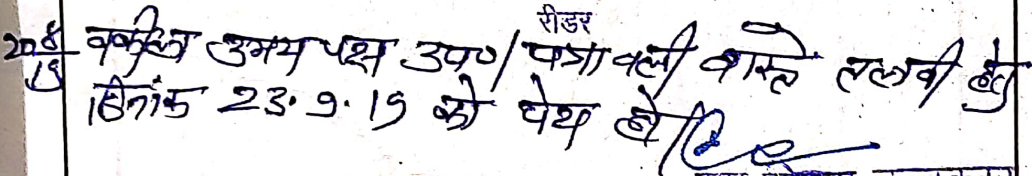 रीडर
20/8/19 वकील उभय पक्ष उप०/ पत्रावली वास्ते तलवी हेतु
दिनांक 23.9.19 को पेश हो/